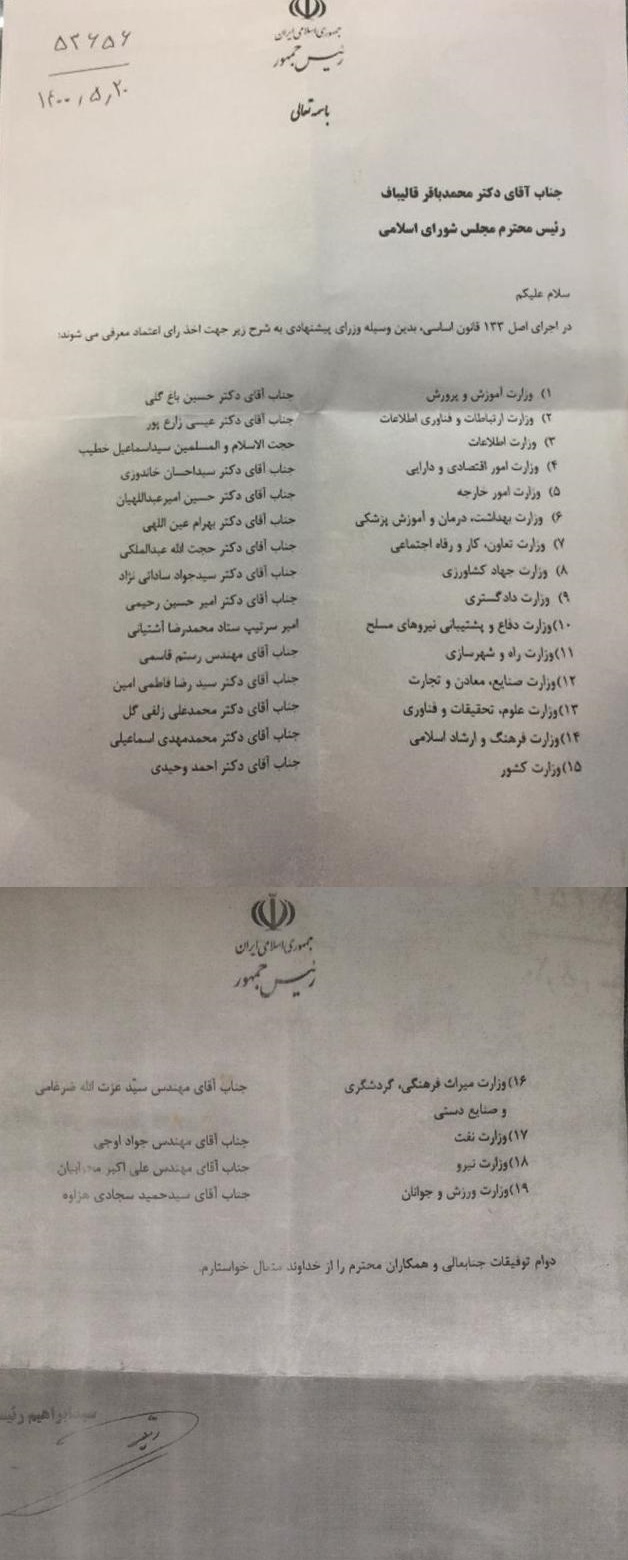 ۵۳۶۵۶
۱۴۰۰,۵,۲۰
جمهوری اسلامی ایران
رئیس جمهور
باسمه تعالی
جناب آقای دکتر محمدباقر قالیباف
رئیس محترم مجلس شورای اسلامی
سلام علیکم
در اجرای اصل ۱۳۳ قانون اساسی، بدین وسیله وزرای پیشنهادی به شرح زیر جهت اخذ رای اعتماد معرفی می شوند:
۱) وزارت آموزش و پرورش جناب آقای دکتر حسین باغ گلی
۲) وزارت ارتباطات و فناوری اطلاعات جناب آقای دکتر عیسی زارع پور
۳) وزارت اطلاعات حجت الاسلام و المسلمین سیداسماعیل خطیب
۴) وزارت امور اقتصادی و دارایی جناب آقای دکتر سیداحسان خاندوزی
۵) وزارت امور خارجه جناب آقای دکتر حسین امیرعبداللهیان
۶) وزارت بهداشت، درمان و آموزش پزشکی جناب آقای دکتر بهرام عین اللهی
۷) وزارت تعاون، کار و رفاه اجتماعی جناب آقای دکتر حجت الله عبدالملکی
۸) وزارت جهاد کشاورزی جناب آقای دکتر سیدجواد ساداتی نژاد
۹) وزارت دادگستری جناب آقای دکتر امیر حسین رحیمی
۱۰)وزارت دفاع و پشتیبانی نیروهای مسلح امیر سرتیپ ستاد محمدرضا آشتیانی
۱۱)وزارت راه و شهرسازی جناب آقای مهندس رستم قاسمی
۱۲)وزارت صنایع، معادن و تجارت جناب آقای دکتر سید رضا فاطمی امین
۱۳)وزارت علوم، تحقیقات و فناوری جناب آقای دکتر محمدعلی زلفی گل
۱۴)وزارت فرهنگ و ارشاد اسلامی جناب آقای دکتر محمدمهدی اسماعیلی
۱۵)وزارت کشور جناب آقای دکتر احمد وحیدی
جمهوری اسلامی ایران
رئیس جمهور
۱۶)وزارت میراث فرهنگی، گردشگری جناب آقای مهندس سیّد عزت الله ضرغامی
و صنایع دستی
۱۷)وزارت نفت جناب آقای مهندس جواد اوجی
۱۸)وزارت نیرو جناب آقای مهندس علی اکبر محرابیان
۱۹)وزارت ورزش و جوانان جناب آقای سیدحمید سجادی هزاوه
دوام توفیقات جنابعالی و همکاران محترم را از خداوند متعال خواستارم.
سیدابراهیم رئیسی